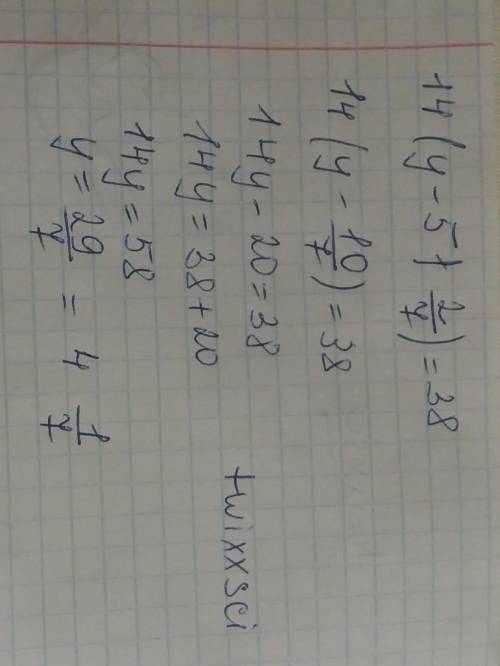 14(y - 5 + 2/7) = 38
14(y - 10/7) = 38
14y - 20 = 38
14y = 38 + 20
14y = 58
y = 29/7 = 4 1/7
twixxsci